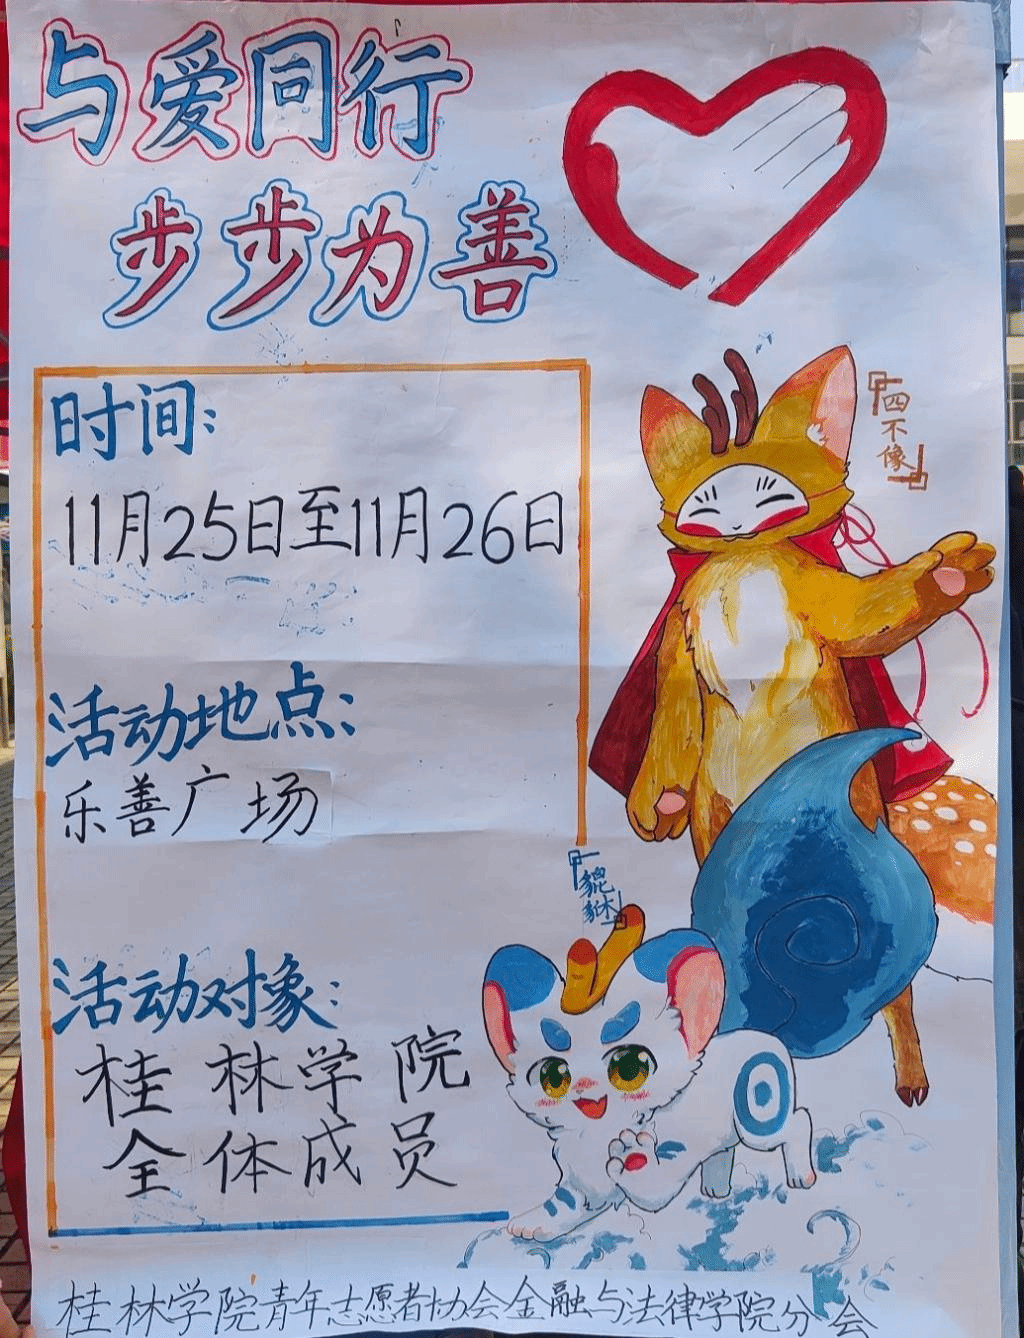 与爱同行
步步为善
时间:
11月25日至11月26日
四不像
活动地点:
乐善广场
貔貅
活动对象:
桂林学院
全体成员
桂林学院青年志愿者协会金融与法律学院分会